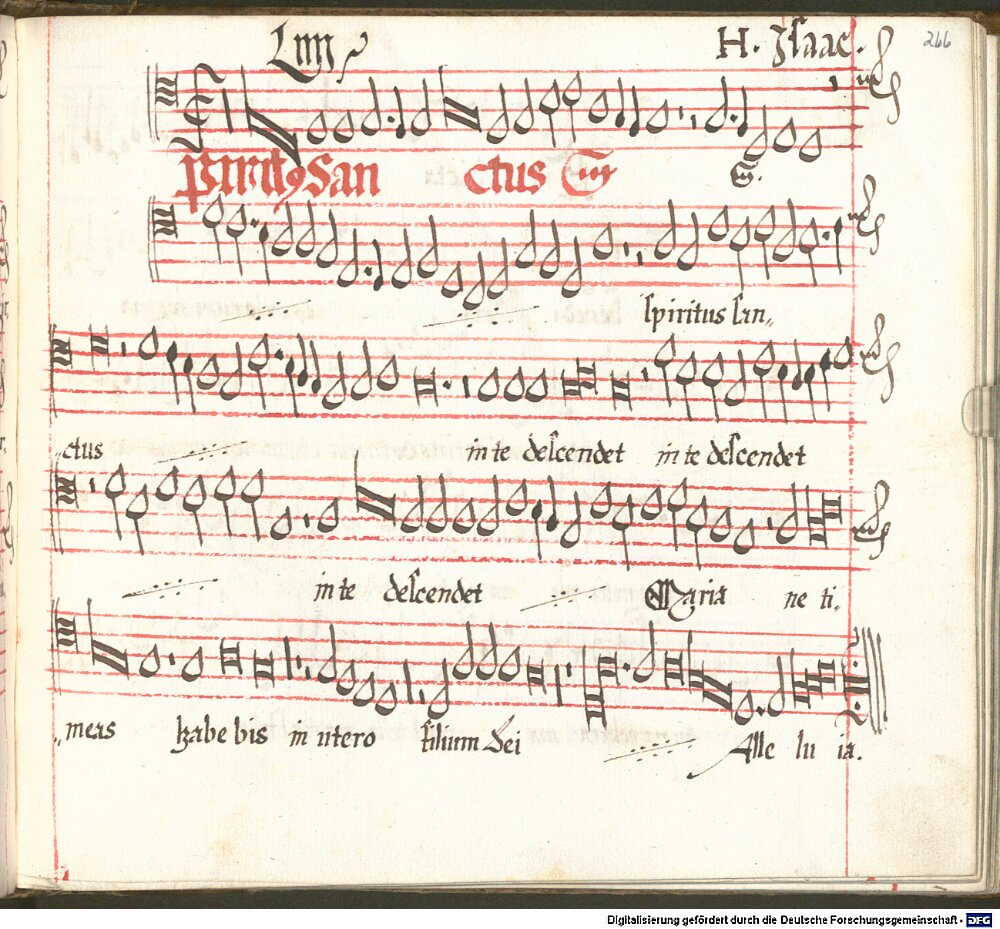 Lviij H. Isaac. 266
Spiritꝰ San ctus
spiritus san„
„ctus in te descendet in te descendet
in te descendet Maria ne ti„
„meas habebis in utero filium Dei Alle lu ia.
Digitalisierung gefördert durch die Deutsche Forschungsgemeinschaft - DFG